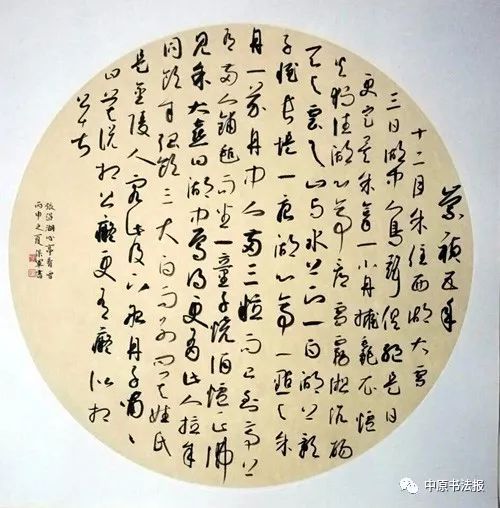 崇禎五年
十二月余住西湖大雪
三日湖中人鳥聲俱絕是日
更定矣余拏一小舟擁毳衣爐
火獨往湖心亭看雪霧凇沆碭
天与雲与山与水上下一白湖上影
子惟長堤一痕湖心亭一點与余
舟一芥舟中人兩三粒而已到亭上
有兩人鋪氈對坐一童子燒酒爐正沸
見余大喜曰湖中焉得更有此人拉余
同飲余強飲三大白而別問其姓氏
是金陵人客此及下船舟子喃喃
曰莫說相公癡更有癡似相
公者
張岱湖心亭看雪
丙申之夏書
中原书法报